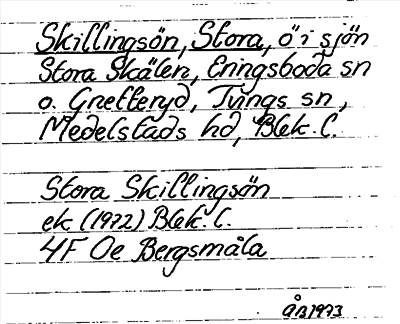 Skillingsön, Stora, ö i sjön
Stora Skälen, Eringsboda sn
o. Gnetteryd, Tvings sn,
Medelstads hd, Blek. l.
Stora Skillingsön
ek (1972) Blek. l.
4F Oe Bergsmåla
ÅB 1973